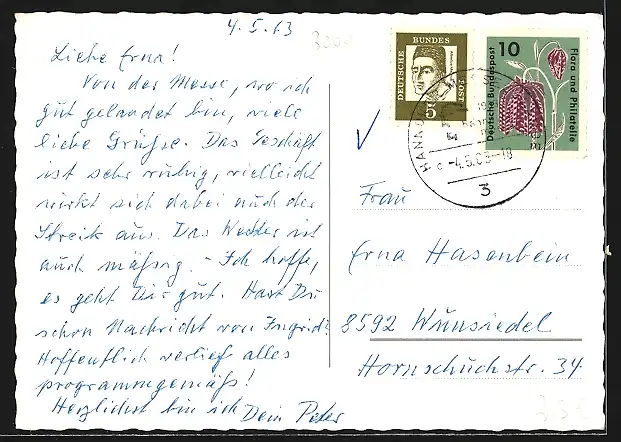 4.5.63
Liebe Erna!
Von der Messe, wo ich
gut gelandet bin, viele
liebe Grüße. Das Geschäft
ist sehr ruhig, vielleicht
wirkt sich dabei auch der
Streik aus. Das Wetter ist
auch mäßig. - Ich hoffe,
es geht Dir gut. Hast Du
schon Nachricht von Ingrid?
Hoffentlich verlief alles
programmgemäß!
Herzlichst bin ich Dein Peter
DEUTSCHE BUNDESPOST
5
10
Deutsche Bundespost
Flora und Philatelie
HANNOVER
-4.5.63-18
3
Frau
Erna Hasenbein
8592 Wunsiedel
Hornschuchstr. 34